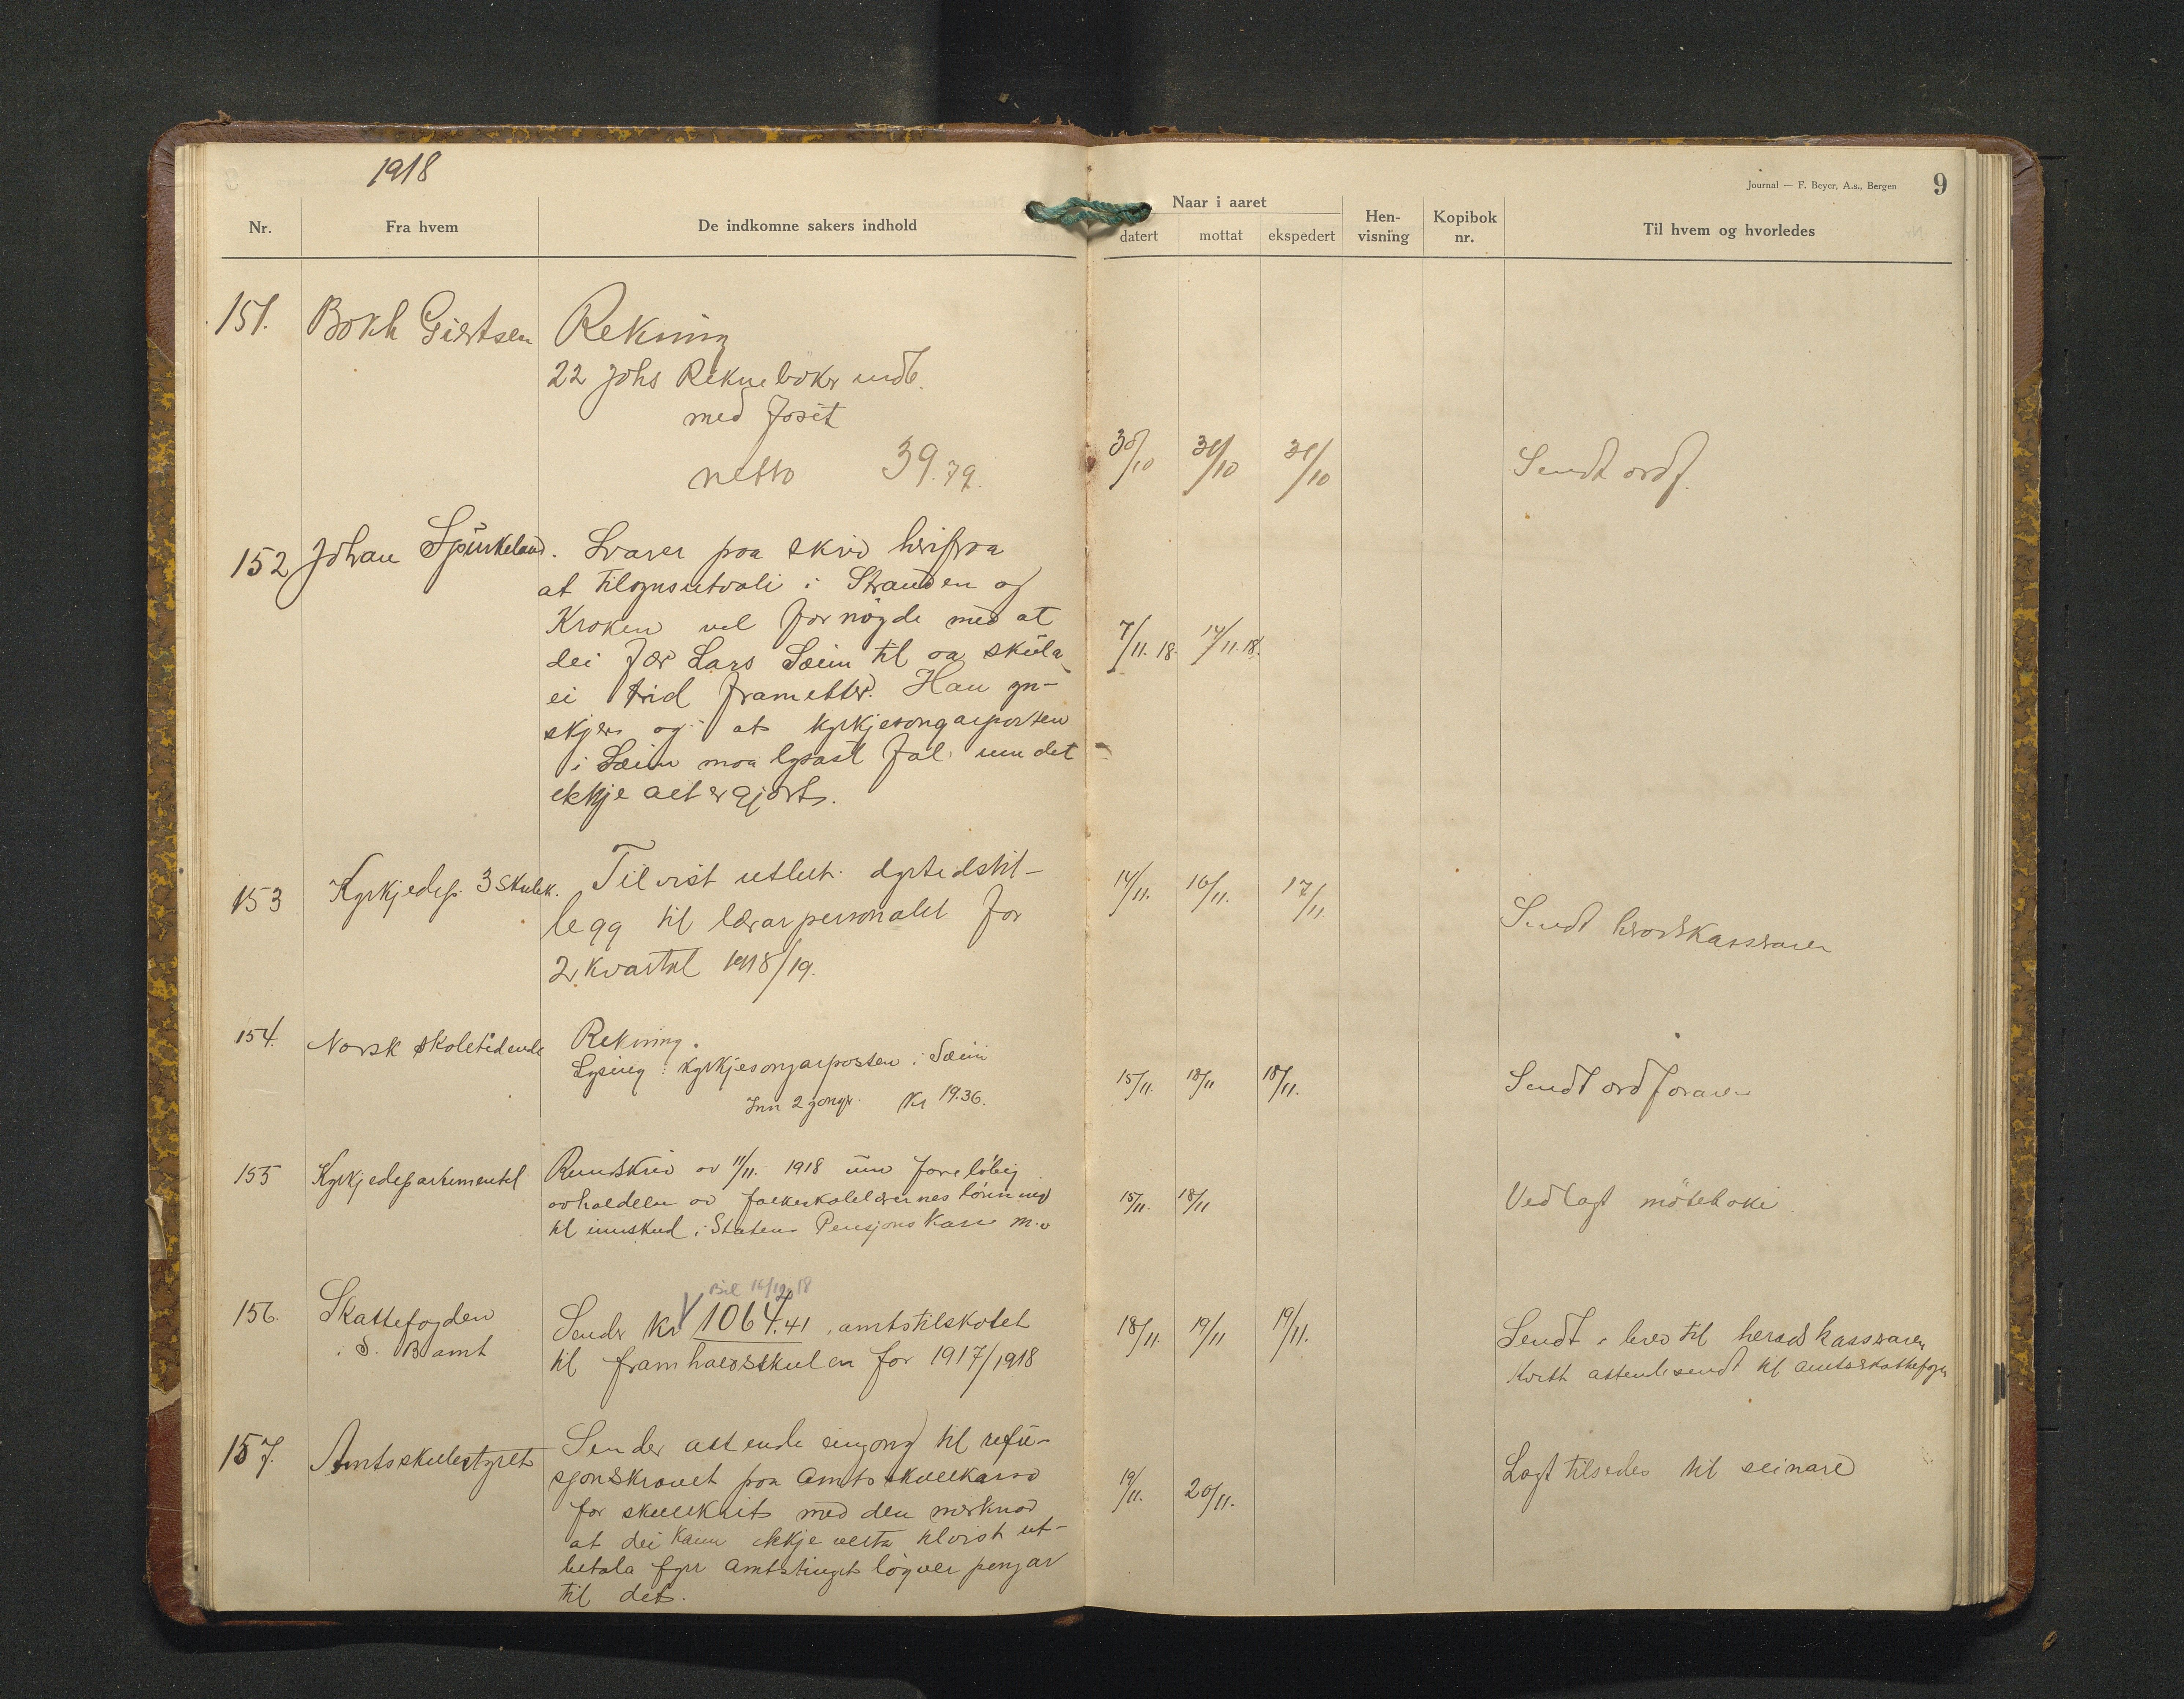 1918
Journal — F. Beyer, A.s., Bergen 9
Nr. Fra hvem De indkomne sakers indhold
Naar i aaret
datert mottat ekspedert
Hen-
visning
Kopibok
nr.
Til hvem og hvorledes
151. Bokh Giertsen Rekning
22 Johs Reknebøker indb.
med
netto 39.79. 30/10 31/10 31/10 Sendt ordf.
152 Johan Spurkeland. Svarer paa skriv herifraa
at tilsynsutvali i Stranden og
Kroken vel fornøgde med at
dei fær Lars Sæim til aa skula
ei trid frametter. Han yn-
skjer og at kyrkjesongarposten
i Sæim maa lysast um det
ekkje alt er gjort.
7/11.18. 14/11.18.
153 Kyrkjedep. 3 skulek. Tilvist utlut. dyrtidstil-
legg til lærarpersonalet for
2. kvartal 1918/19.
14/11. 16/11. 17/11. Sendt
154. Norsk skoletidende Rekning.
Lysing: kyrkjesongarposten i Sæim
Inn 2 gonger. Kr 19.36.
15/11. 18/11 18/11. Sendt ordforaren
155 Kyrkjedepartementet Rundskriv av 11/11. 1918 um foreløbig
avholdelse av folkeskolelærernes lønn
til innskud i Statens Pensjons Kasse m.v
15/11. 18/11 Vedlagt møteboki.
Bil 16/12 18
156. Skattefogden
i S. B. amt
Sender Kr 1064.41, amtstilskotet
til framhaldsskulen for 1917/1918
18/11. 19/11 19/11. Sendt i brev til heradskasseraren
Kvitt attendesendt til amtsskattefogden
157. Amtsskulestyret Sender attende til refu-
sjonskravet paa Amtsskulekassa
for med den merknad
at dei kann ikkje verta tilvist ut-
betala fyrr amtstinget løyver pengar
til det.
19/11. 20/11. Lagt tilsides til seinare